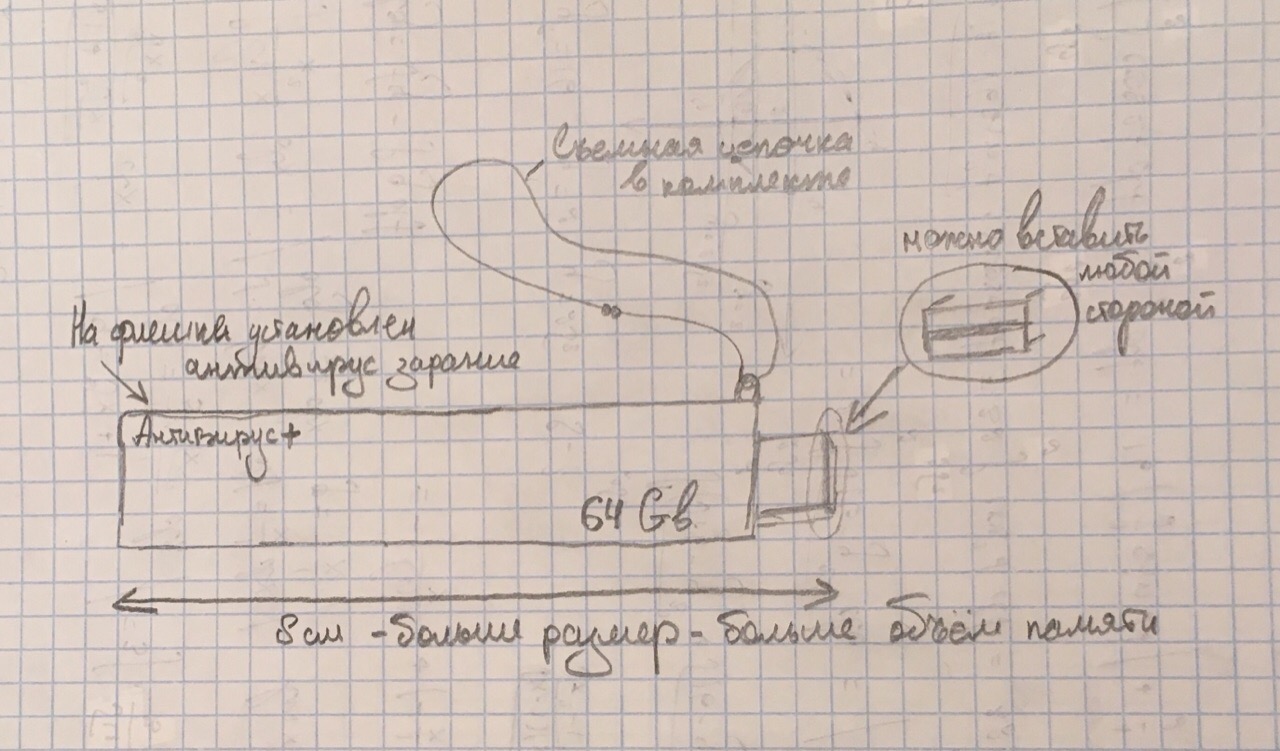 Съемная цепочка
в комплекте
можно вставить
любой
стороной
На флешка установлен
антивирус зарание
Антивирус+
64 Gb
8 см - больше размер - больше объём памяти